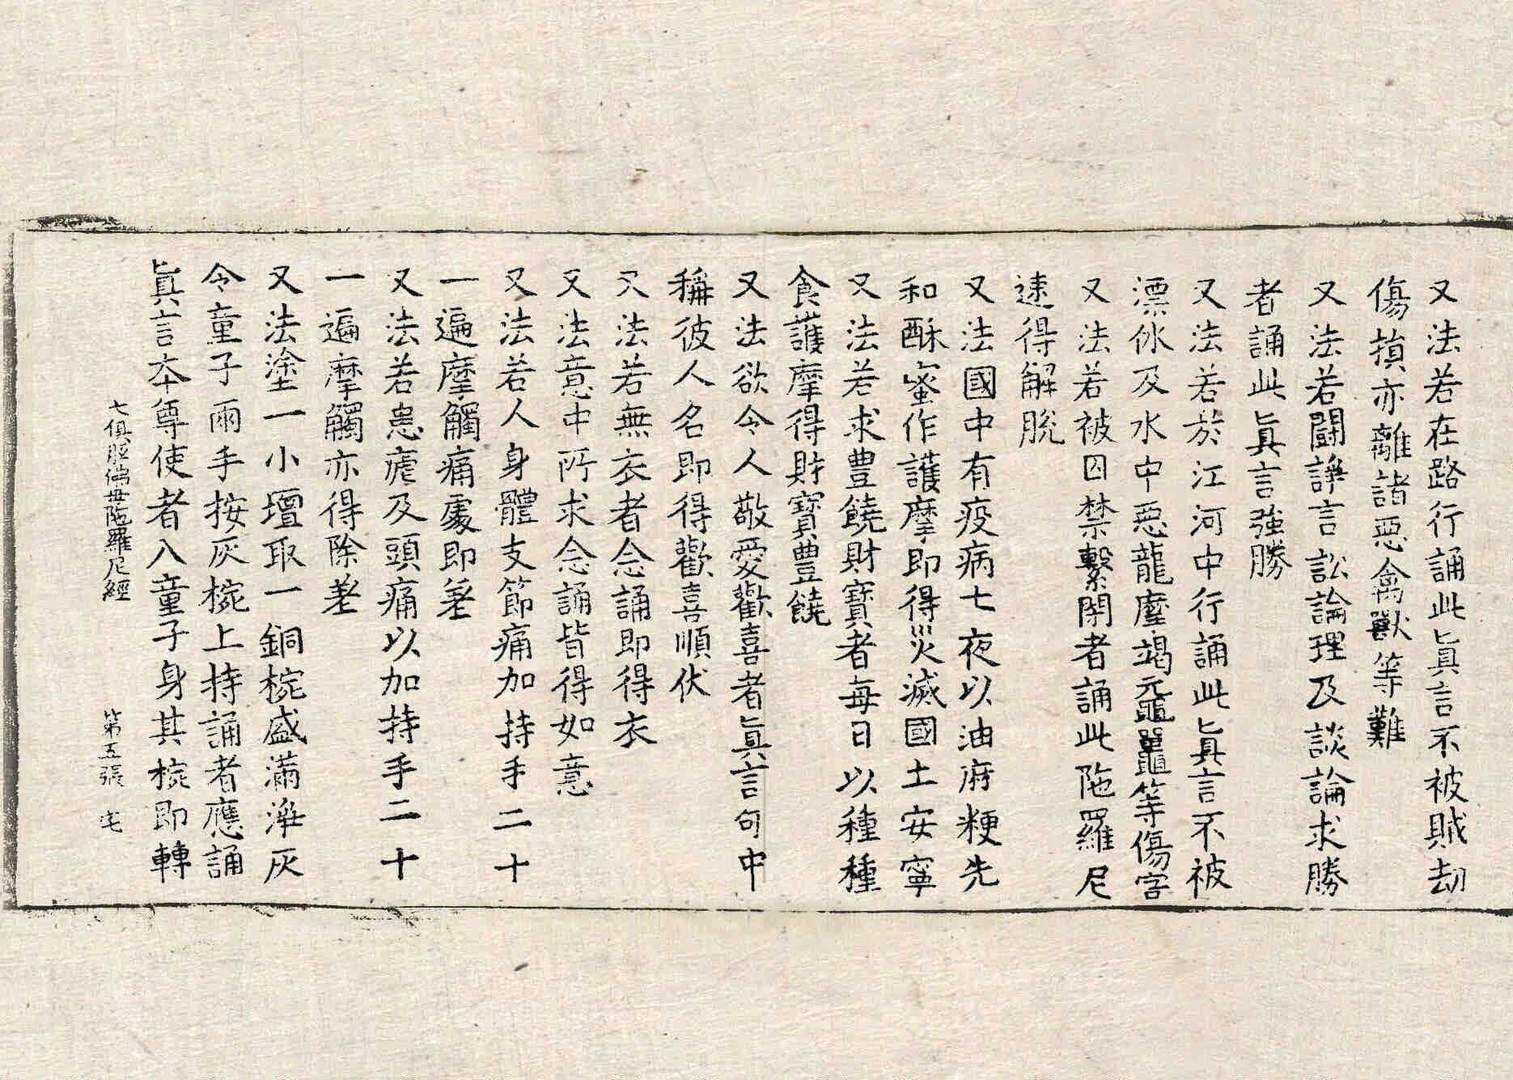 又法若在路行誦此眞言不被賊劫
傷損亦離諸惡禽獸等難
又法若鬪諍言訟論理及談論求勝
者誦此眞言強勝
又法若於江河中行誦此眞言不被
漂㲽及水中惡龍摩竭黿鼉等傷害
又法若被囚禁繫閉者誦此陁羅尼
速得解脫
又法國中有疫病七夜以油麻粳先
和酥蜜作護摩即得災滅國土安寧
又法若求豊饒財寶者每日以種種
食護摩得財寶豊饒
又法欲令人敬愛歡喜者眞言句中
稱彼人名即得歡喜順伏
又法若無衣者念誦即得衣
又法意中所求念誦皆得如意
又法若人身體支節痛加持手二十
一遍摩觸痛處即差
又法若患瘧及頭痛以加持手二十
一遍摩觸亦得除差
又法塗一小壇取一銅椀盛滿淨灰
令童子兩手按灰椀上持誦者應誦
眞言本尊使者入童子身其椀即轉
七俱胝佛母陁羅尼經 第五張 宅